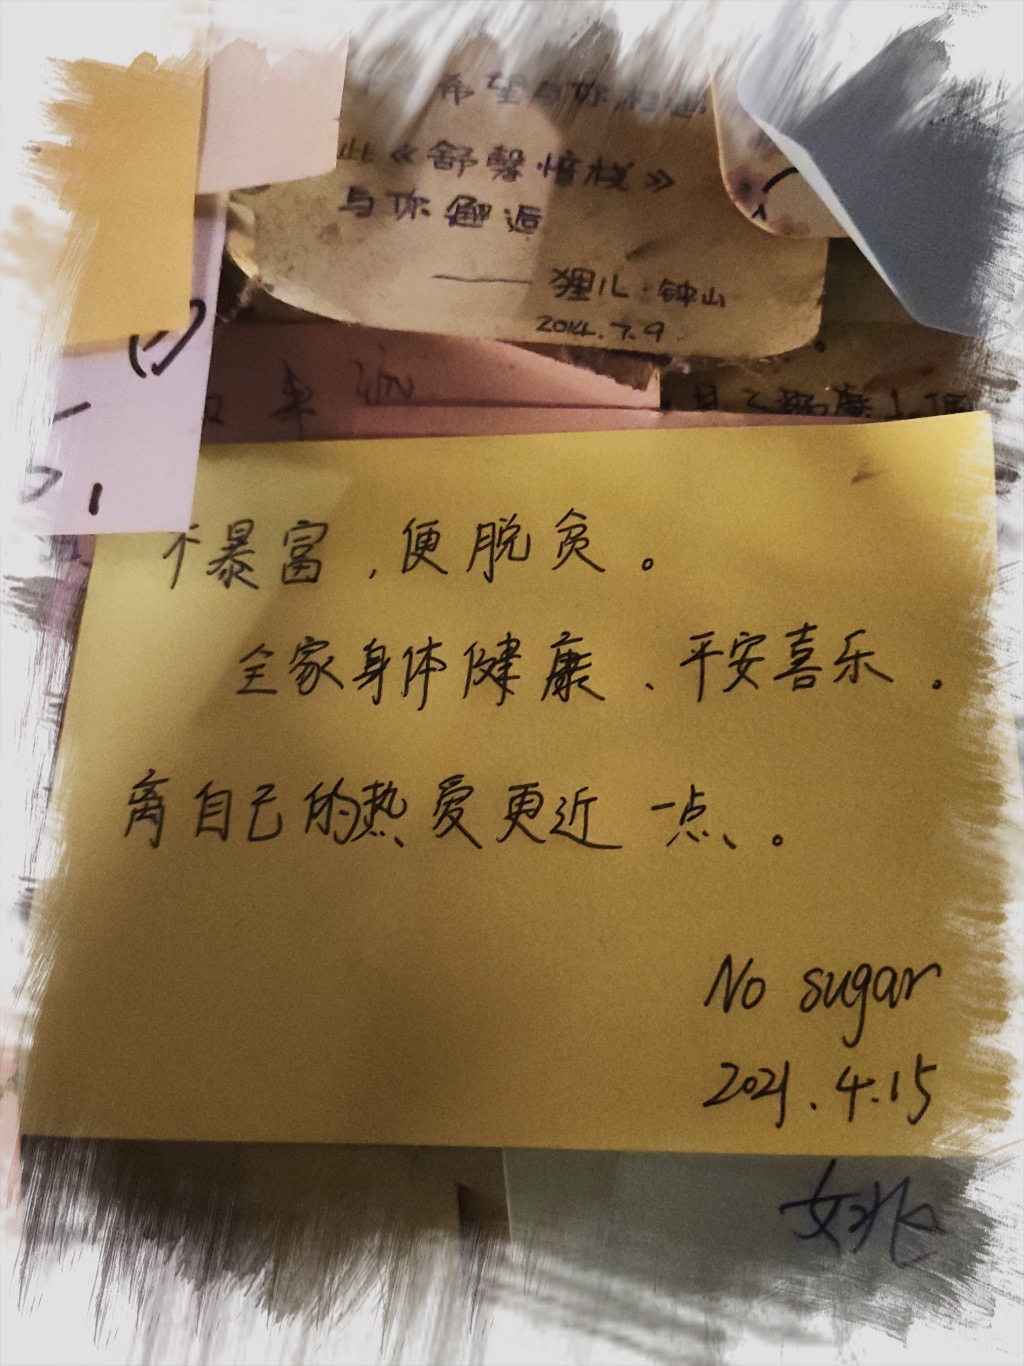 希望与你相遇
此《舒馨愔栈》
与你邂逅
——狸儿 钟山
2014.7.9
来
不暴富，便脱贫。
全家身体健康、平安喜乐。
离自己的热爱更近一点、。
No sugar
2021.4.15
姚